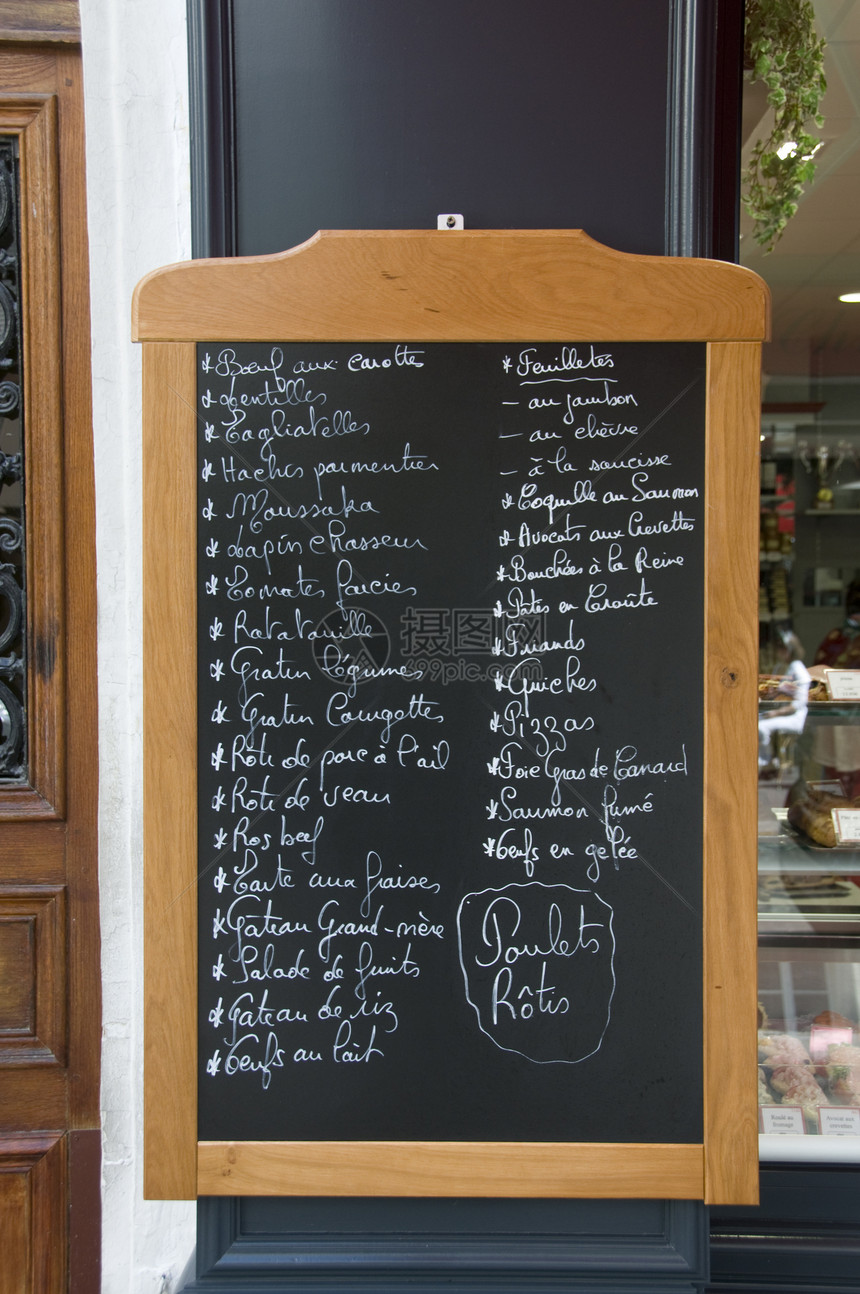 * Bœuf aux carottes
* Lentilles
* Tagliatelles
* Hachis parmentier
* Moussaka
* Lapin chasseur
* Tomates farcies
* Ratatouille
* Gratin légumes
* Gratin Courgettes
* Roti de porc à l'ail
* Roti de veau
* Rosbeef
* Tarte aux fraises
* Gâteau Grand-mère
* Salade de fruits
* Gateau de riz
* Oeufs au lait
* Feuilletés
- au jambon
- au chèvre
- à la saucisse
* Coquille au Saumon
* Avocats aux Crevettes
* Bouchées à la Reine
* Pâtés en Croûte
* Friands
* Quiches
* Pizzas
* Foie Gras de Canard
* Saumon fumé
* Oeufs en gelée
Poulets
Rôtis
摄图网
699pic.com